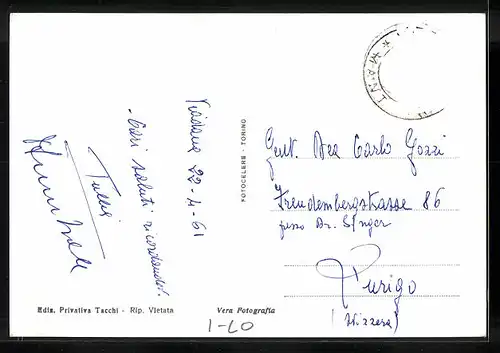 Viadana 22-4-61
Cari saluti ricordandoti
Tullia
Gent. Dea Carlo Gozzi
Freudenbergstrasse 86
presso Dr. Singer
Zurigo
(Svizzera)
FOTOCELERE - TORINO
Ediz. Privativa Tacchi - Rip. Vietata
Vera Fotografia
1-LO